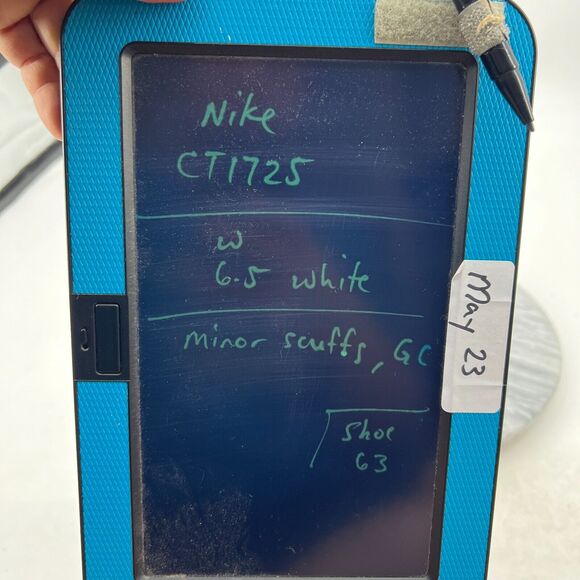 Nike
CT1725
w
6.5 white
minor scuffs, GC
Shoe
63
May 23